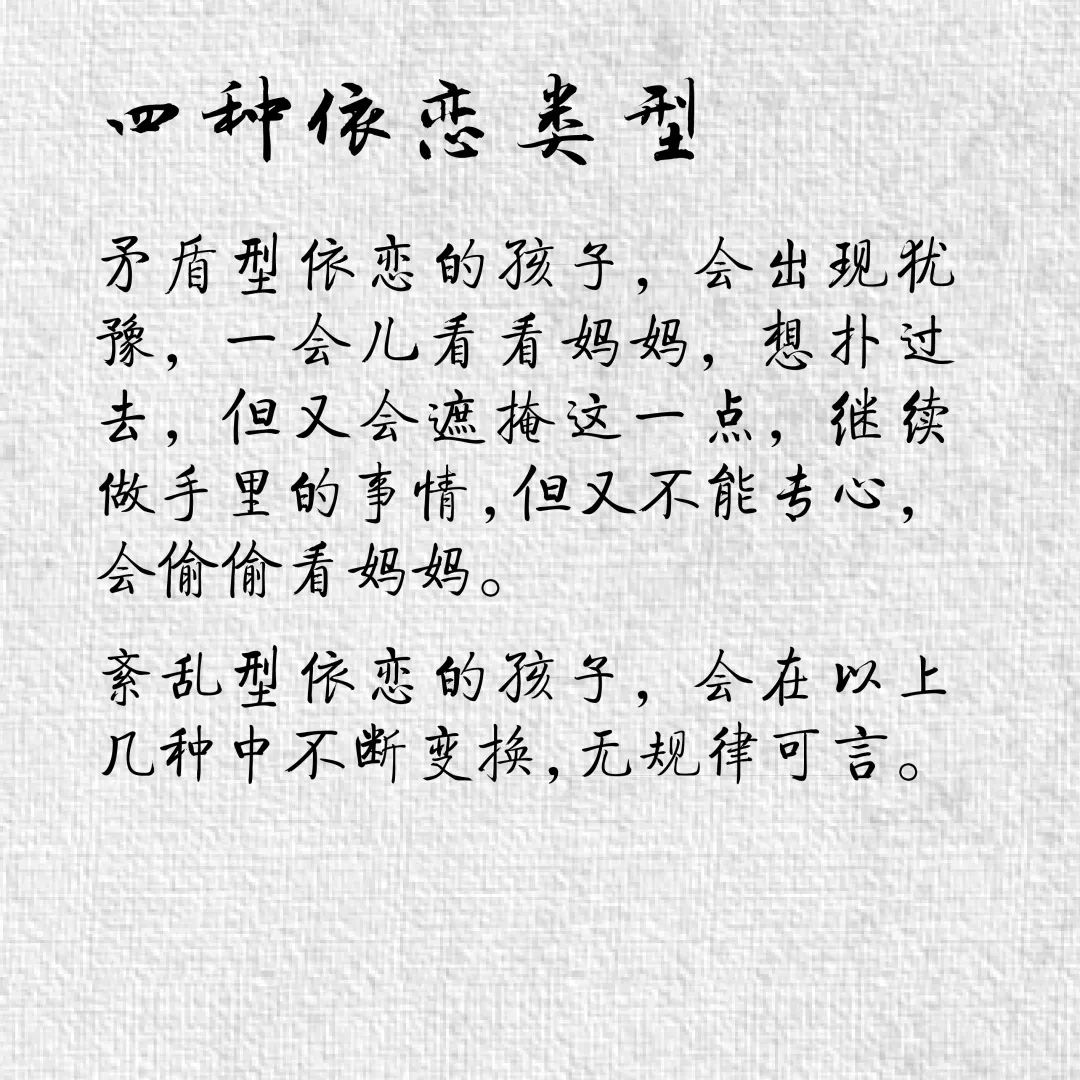 四种依恋类型
矛盾型依恋的孩子，会出现犹
豫，一会儿看看妈妈，想扑过
去，但又会遮掩这一点，继续
做手里的事情，但又不能专心，
会偷偷看妈妈。
紊乱型依恋的孩子，会在以上
几种中不断变换，无规律可言。